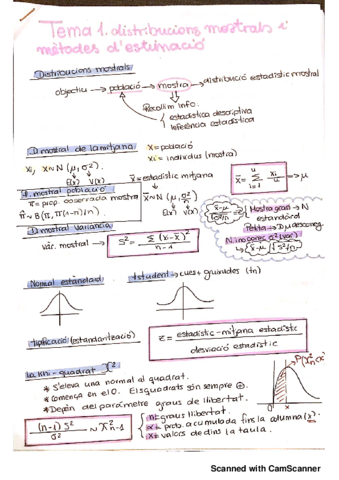 Tema 1. distribucions mostrals i
mètodes d'estimació
Distribucions mostrals
objectiu → població → mostra → distribució estadístic mostral
Recollim info:
estadística descriptiva
inferència estadística
D. mostral de la mitjana
X = població
Xi = individus (mostra)
Xi, X ~ N (μ, σ²)
E(X) V(X)
X̄ = estadístic mitjana
→ μ
D. mostral població
π̂ = prop. observada mostra
π̂ ~ B(π, π(1-π)/n)
E(X) V(X)
Mostra gran → N
estandard
D. mostral Variància
vàr. mostral → S² = Σ(x-x̄)² / n-1
Normal estàndard
t student → cues gruixudes (tn)
tipificació (estandarització)
z = estadístic - mitjana estadístic / desviació estadístic
la khi-quadrat X²
* S'eleva una normal al quadrat.
* Comença en el 0. Els quadrats són sempre ⊕.
* Depèn del paràmetre graus de llibertat.
(n-1) S² / σ² ~ X² n-1
n = graus llibertat.
α = prob. acumulada fins la columna (x).
x = valors de dins la taula.
Scanned with CamScanner